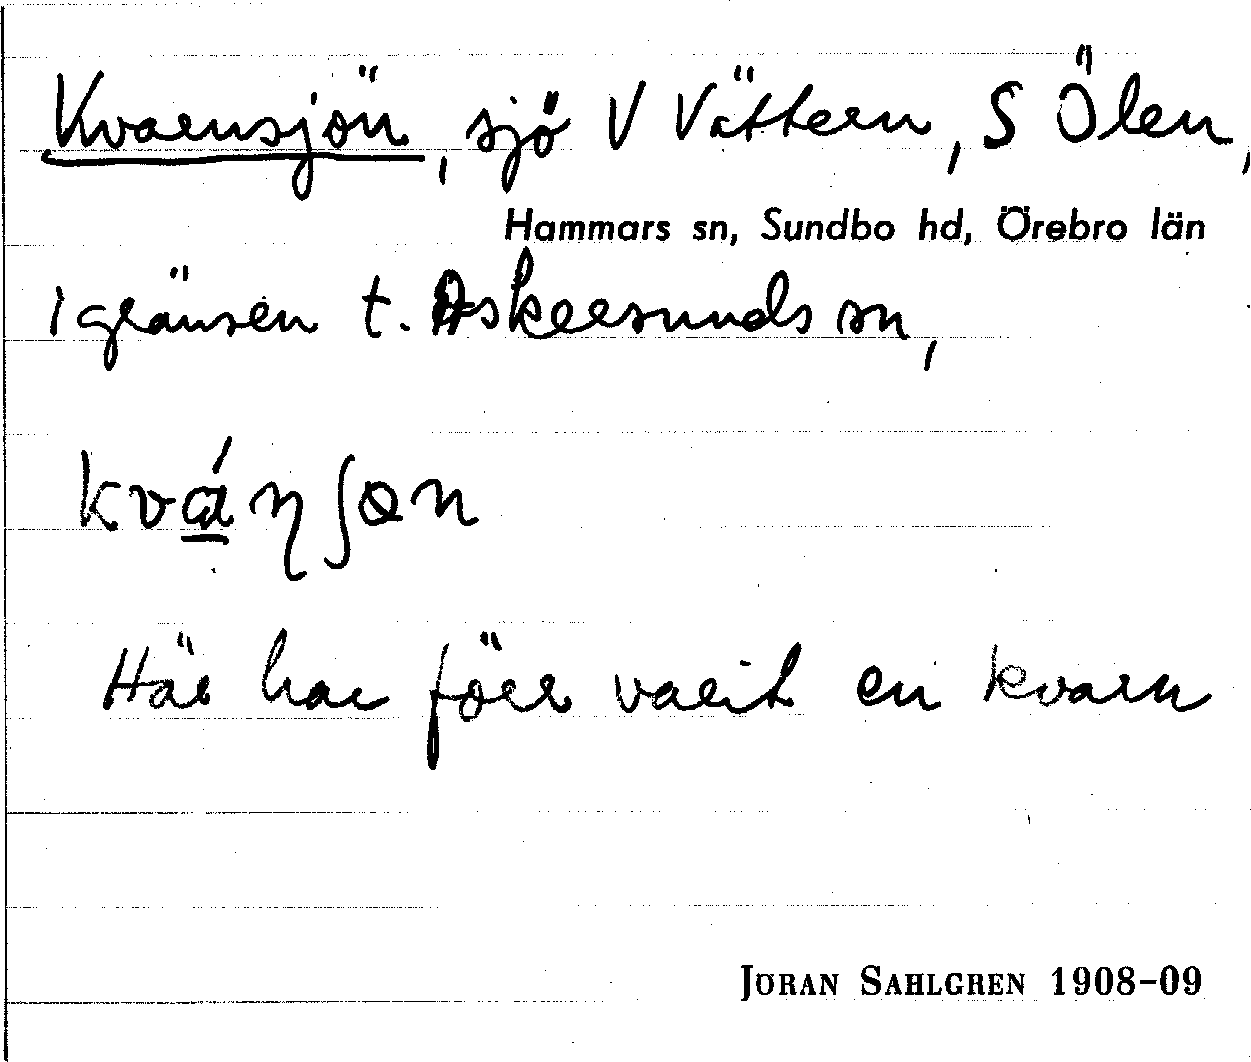 Kvarnsjön, sjö V Vättern, S Ölen,
Hammars sn, Sundbo hd, Örebro län
i gränsen t. Askersunds sn,
kvа́ŋʃɵn
Här har förr varit en kvarn
JÖRAN SAHLGREN 1908–09